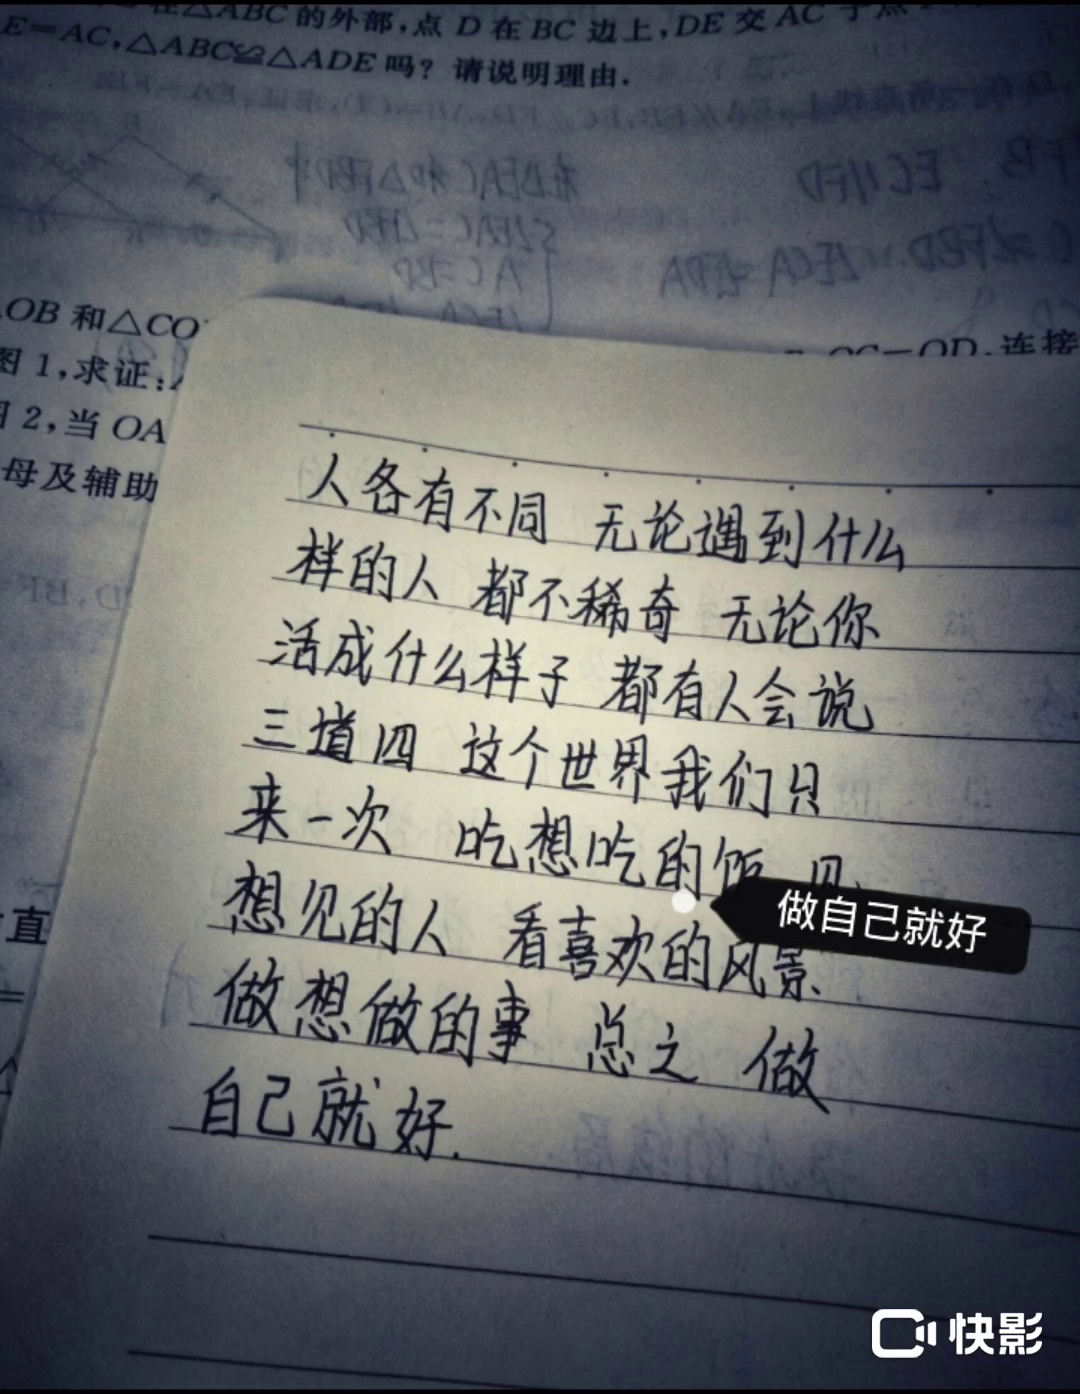 在△ABC 的外部,点 D 在 BC 边上,DE 交 AC 于点
E=AC,△ABC≌△ADE 吗? 请说明理由.
OB 和△CO
OC=OD,连接
图 1,求证:
2,当 OA
母及辅助
直
人各有不同 无论遇到什么
样的人 都不稀奇 无论你
活成什么样子 都有人会说
三道四 这个世界我们只
来一次 吃想吃的饭 见
想见的人 看喜欢的风景
做想做的事 总之 做
自己就好.
做自己就好
快影